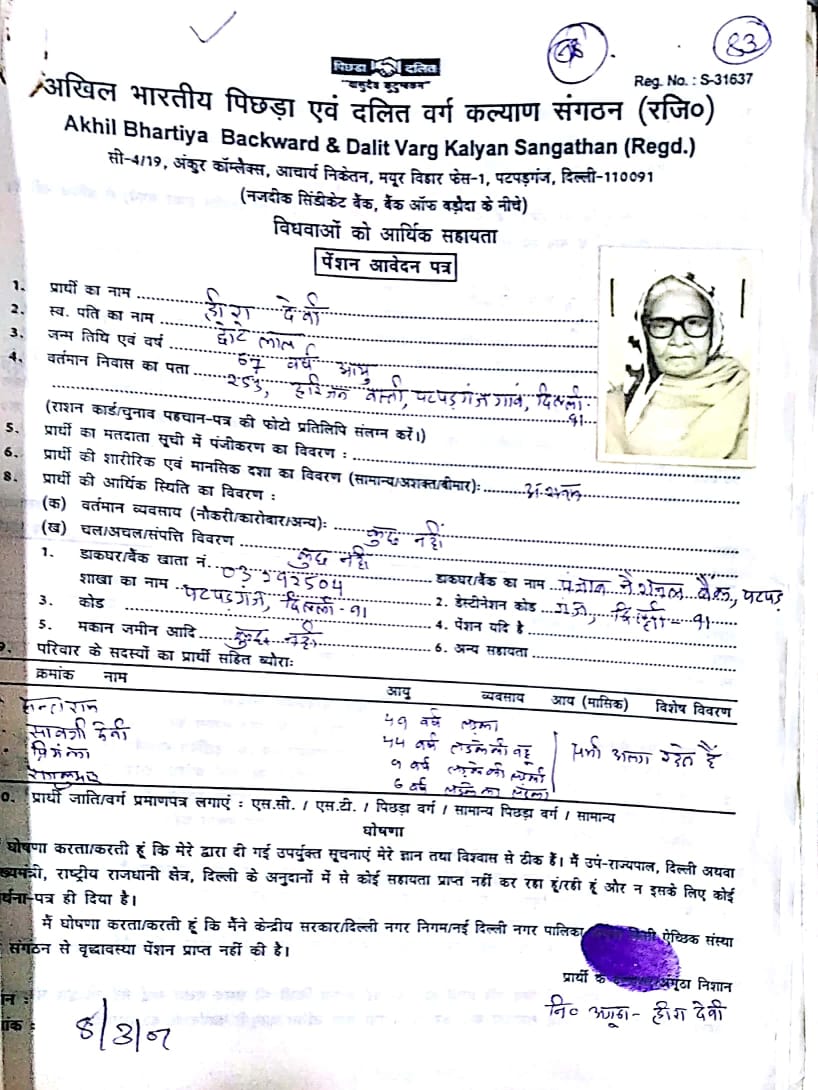 83
पिछड़ा दलित
"वासुदेव कुटुम्बकम"
Reg. No. : S-31637
अखिल भारतीय पिछड़ा एवं दलित वर्ग कल्याण संगठन (रजि०)
Akhil Bhartiya Backward & Dalit Varg Kalyan Sangathan (Regd.)
सी-4/19, अंकुर कॉम्लैक्स, आचार्य निकेतन, मयूर विहार फेस-1, पटपड़गंज, दिल्ली-110091
(नजदीक सिंडीकेट बैंक, बैंक ऑफ बड़ौदा के नीचे)
विधवाओं को आर्थिक सहायता
पेंशन आवेदन पत्र
1. प्रार्थी का नाम हीरा देवी
2. स्व. पति का नाम छोटे लाल
3. जन्म तिथि एवं वर्ष 67 वर्ष आयु
4. वर्तमान निवास का पता 253, हरिजन बस्ती, पटपड़गंज गांव, दिल्ली-91
(राशन कार्ड/चुनाव पहचान-पत्र की फोटो प्रतिलिपि संलग्न करें।)
5. प्रार्थी का मतदाता सूची में पंजीकरण का विवरण :
6. प्रार्थी की शारीरिक एवं मानसिक दशा का विवरण (सामान्य/अशक्त/बीमार):
8. प्रार्थी की आर्थिक स्थिति का विवरण :
(क) वर्तमान व्यवसाय (नौकरी/कारोबार/अन्य): कुछ नहीं
(ख) चल/अचल/संपत्ति विवरण कुछ नहीं
1. डाकघर/बैंक खाता नं. डाकघर/बैंक का नाम पंजाब नैशनल बैंक, पटपड़
शाखा का नाम पटपड़गंज, दिल्ली-91 2. डेस्टीनेशन कोड गंज, दिल्ली-91
3. कोड 4. पेंशन यदि है
5. मकान जमीन आदि कुछ नहीं 6. अन्य सहायता
9. परिवार के सदस्यों का प्रार्थी सहित ब्योराः
क्रमांक नाम आयु व्यवसाय आय (मासिक) विशेष विवरण
49 वर्ष लड़का
देवी 44 वर्ष लड़के की बहू सभी अलग रहते हैं
9 वर्ष लड़के की लड़की
6 वर्ष लड़के का लड़का
0. प्रार्थी जाति/वर्ग प्रमाणपत्र लगाएं : एस.सी. / एस.टी. / पिछड़ा वर्ग / सामान्य पिछड़ा वर्ग / सामान्य
घोषणा
घोषणा करता/करती हूं कि मेरे द्वारा दी गई उपर्युक्त सूचनाएं मेरे ज्ञान तथा विश्वास से ठीक हैं। मैं उप-राज्यपाल, दिल्ली अथवा
ख्यमंत्री, राष्ट्रीय राजधानी क्षेत्र, दिल्ली के अनुदानों में से कोई सहायता प्राप्त नहीं कर रहा हूं/रही हूं और न इसके लिए कोई
र्थना-पत्र ही दिया है।
मैं घोषणा करता/करती हूं कि मैंने केन्द्रीय सरकार/दिल्ली नगर निगम/नई दिल्ली नगर पालिका ऐच्छिक संस्था
संगठन से वृद्धावस्था पेंशन प्राप्त नहीं की है।
प्रार्थी के अंगूठा निशान
नि० अंगूठा- हीरा देवी
ान :
ांक :